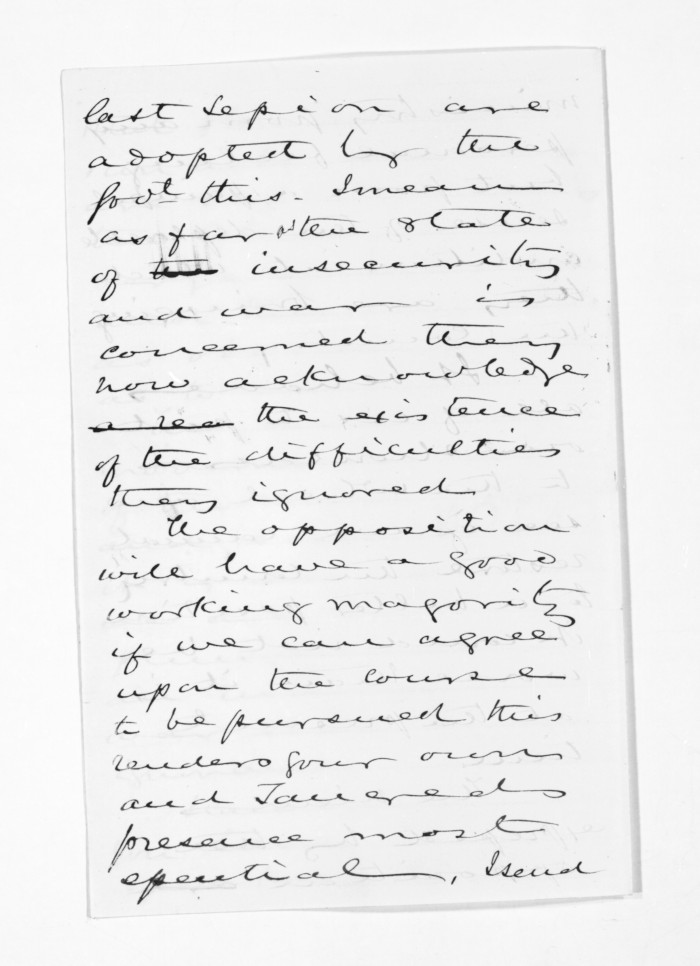 last Session are
adopted by the
Govt this. I mean
as far as the State
of insecurity
and war is
concerned they
now acknowledge
the existence
of the difficulties
they ignored
The opposition
will have a good
working magority
if we can agree
upon the course
to be pursued this
renders your own
and Tancreds
presence most
essential, I send